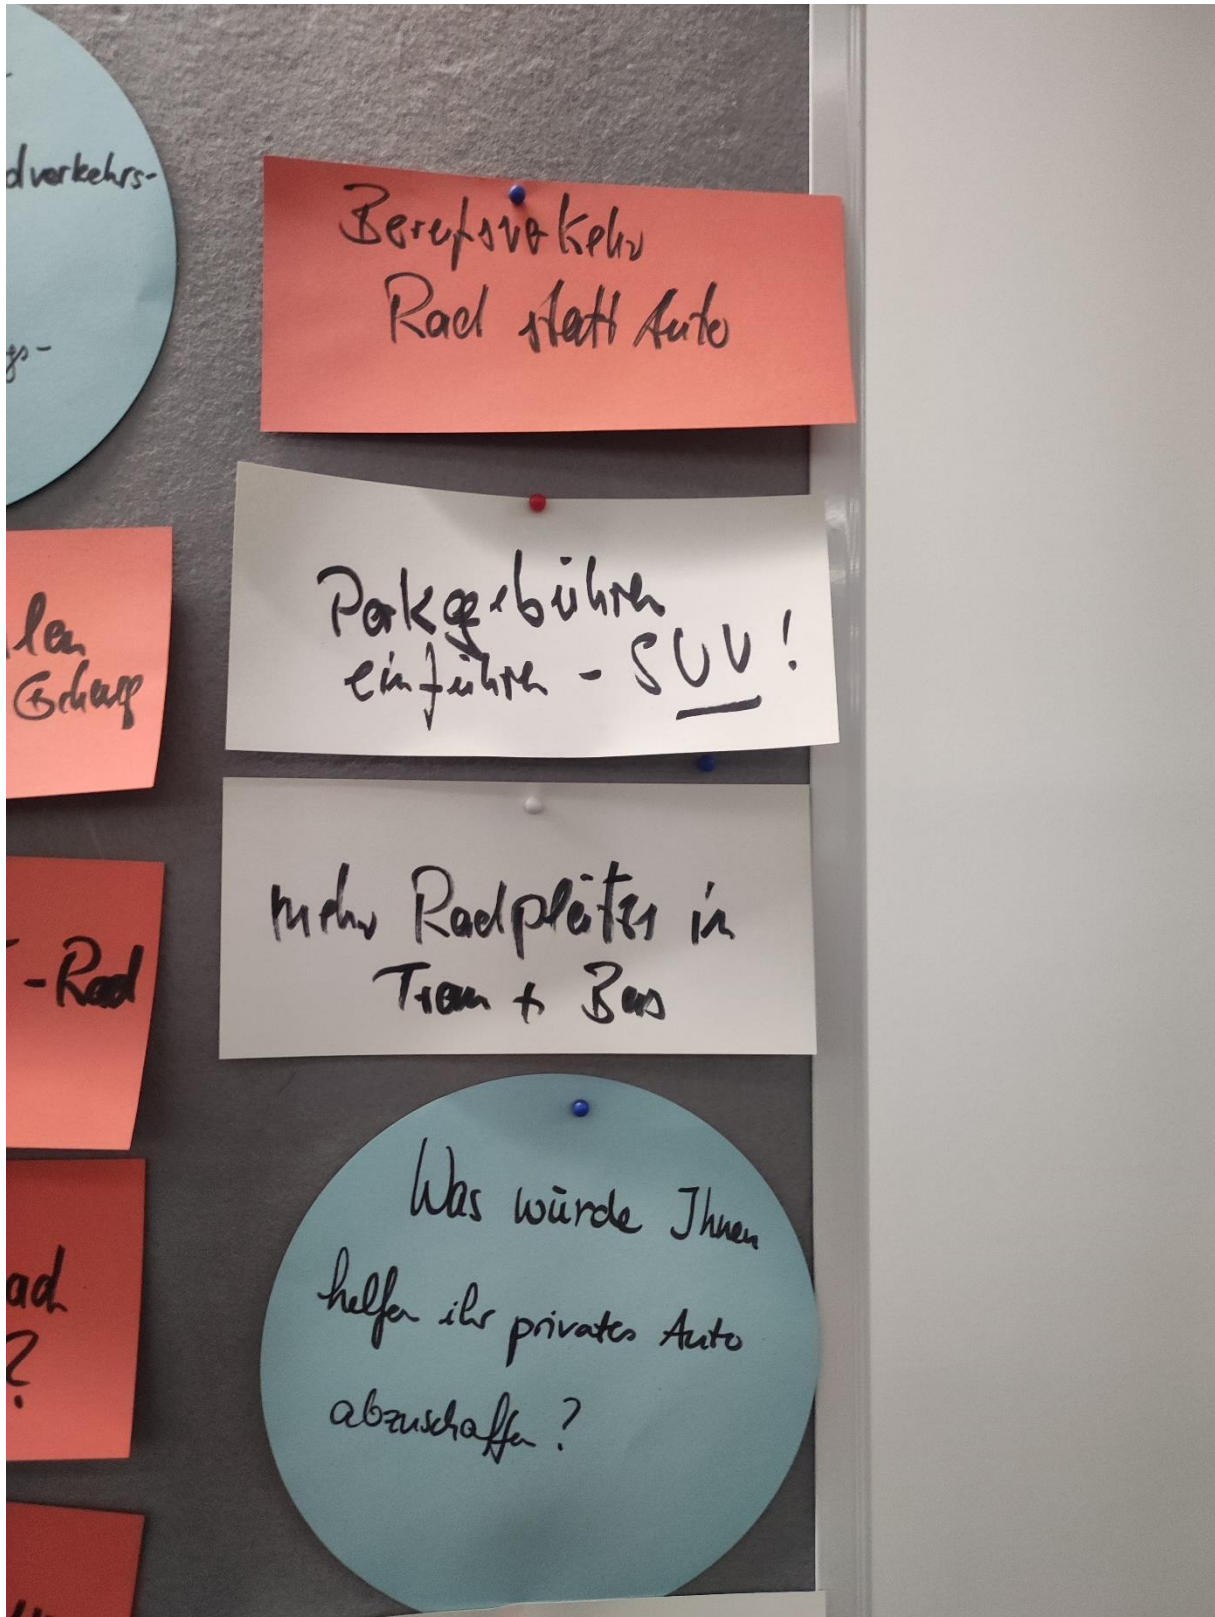 dverkehrs-
gs-
Berufsverkehr
Rad statt Auto
Parkgebühren
einführen - SUV!
len
mehr Radplätze in
Tram + Bus
-Rad
Was würde Ihnen
helfen ihr privates Auto
abzuschaffen?
ad
?